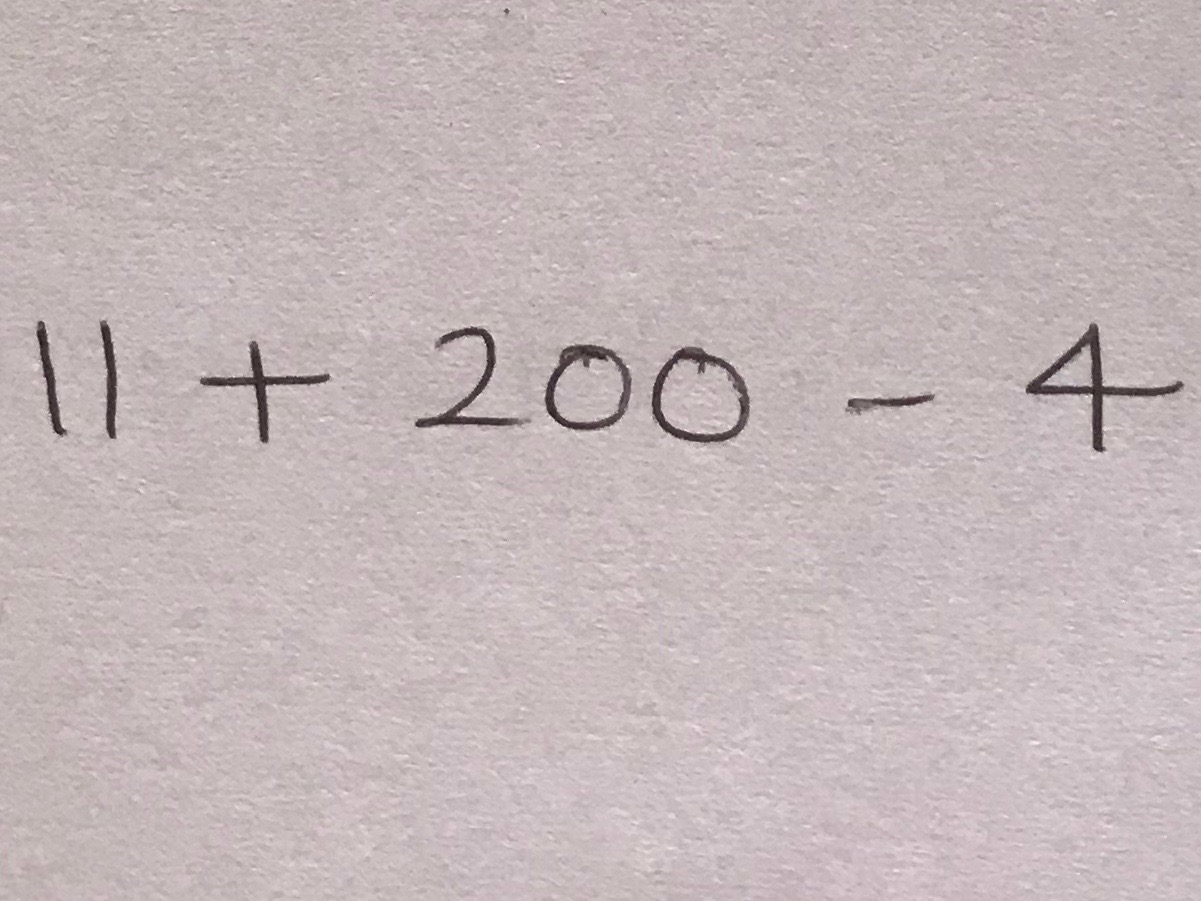 11 + 200 - 4